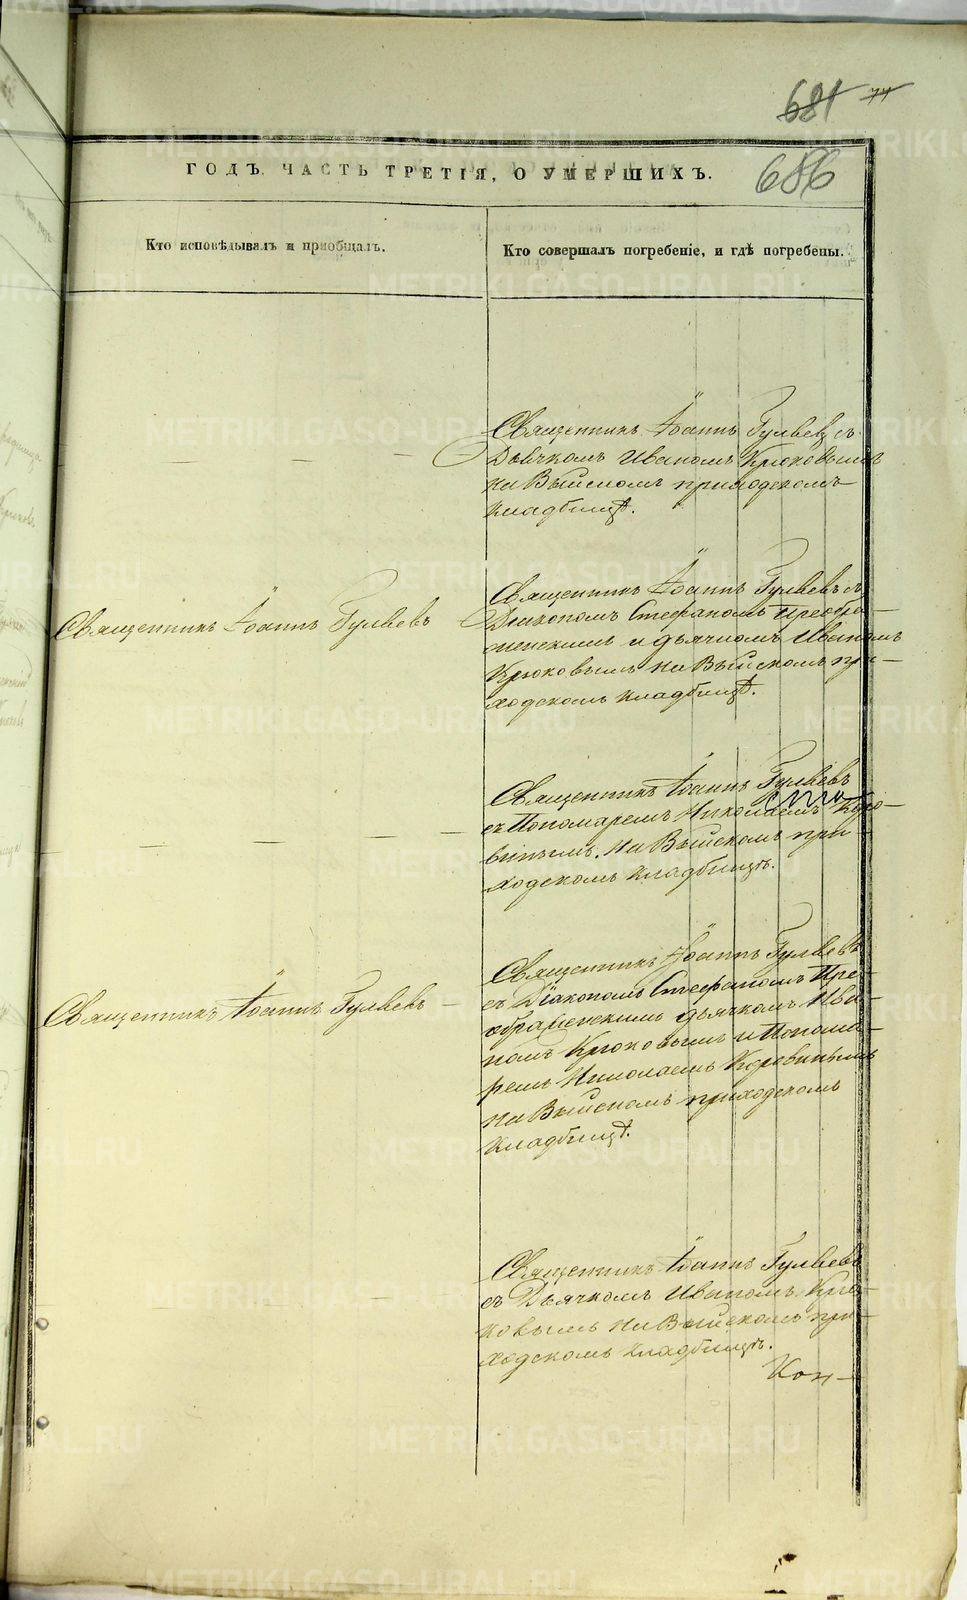 681 74
ГОДЪ. ЧАСТЬ ТРЕТІЯ, О УМЕРШИХЪ.
686
Кто исповѣдывалъ и пріобщалъ.
Кто совершалъ погребеніе, и гдѣ погребены.
Священникъ Іоаннъ Гуляевъ съ
Дьячкомъ Иваномъ Крюковымъ
на Выйскомъ приходскомъ
кладбищѣ.
Священникъ Іоаннъ Гуляевъ
Священникъ Іоаннъ Гуляевъ съ
Діакономъ Стефаномъ Преобра-
женскимъ и дьячкомъ Иваномъ
Крюковымъ на Выйскомъ при-
ходскомъ кладбищѣ.
Священникъ Іоаннъ Гуляевъ
съ Пономаремъ Николаемъ Коро-
винымъ. На Выйскомъ при-
ходскомъ кладбищѣ.
Священникъ Іоаннъ Гуляевъ
Священникъ Іоаннъ Гуляевъ
съ Діакономъ Стефаномъ Пре-
ображенскимъ дьячкомъ Ива-
номъ Крюковымъ и Понома-
ремъ Николаемъ Коровинымъ
на Выйскомъ приходскомъ
кладбищѣ.
Священникъ Іоаннъ Гуляевъ
съ Дьячкомъ Иваномъ Крю-
ковымъ на Выйскомъ при-
ходскомъ кладбищѣ.
Кон-
METRIKI.GASO-URAL.RU